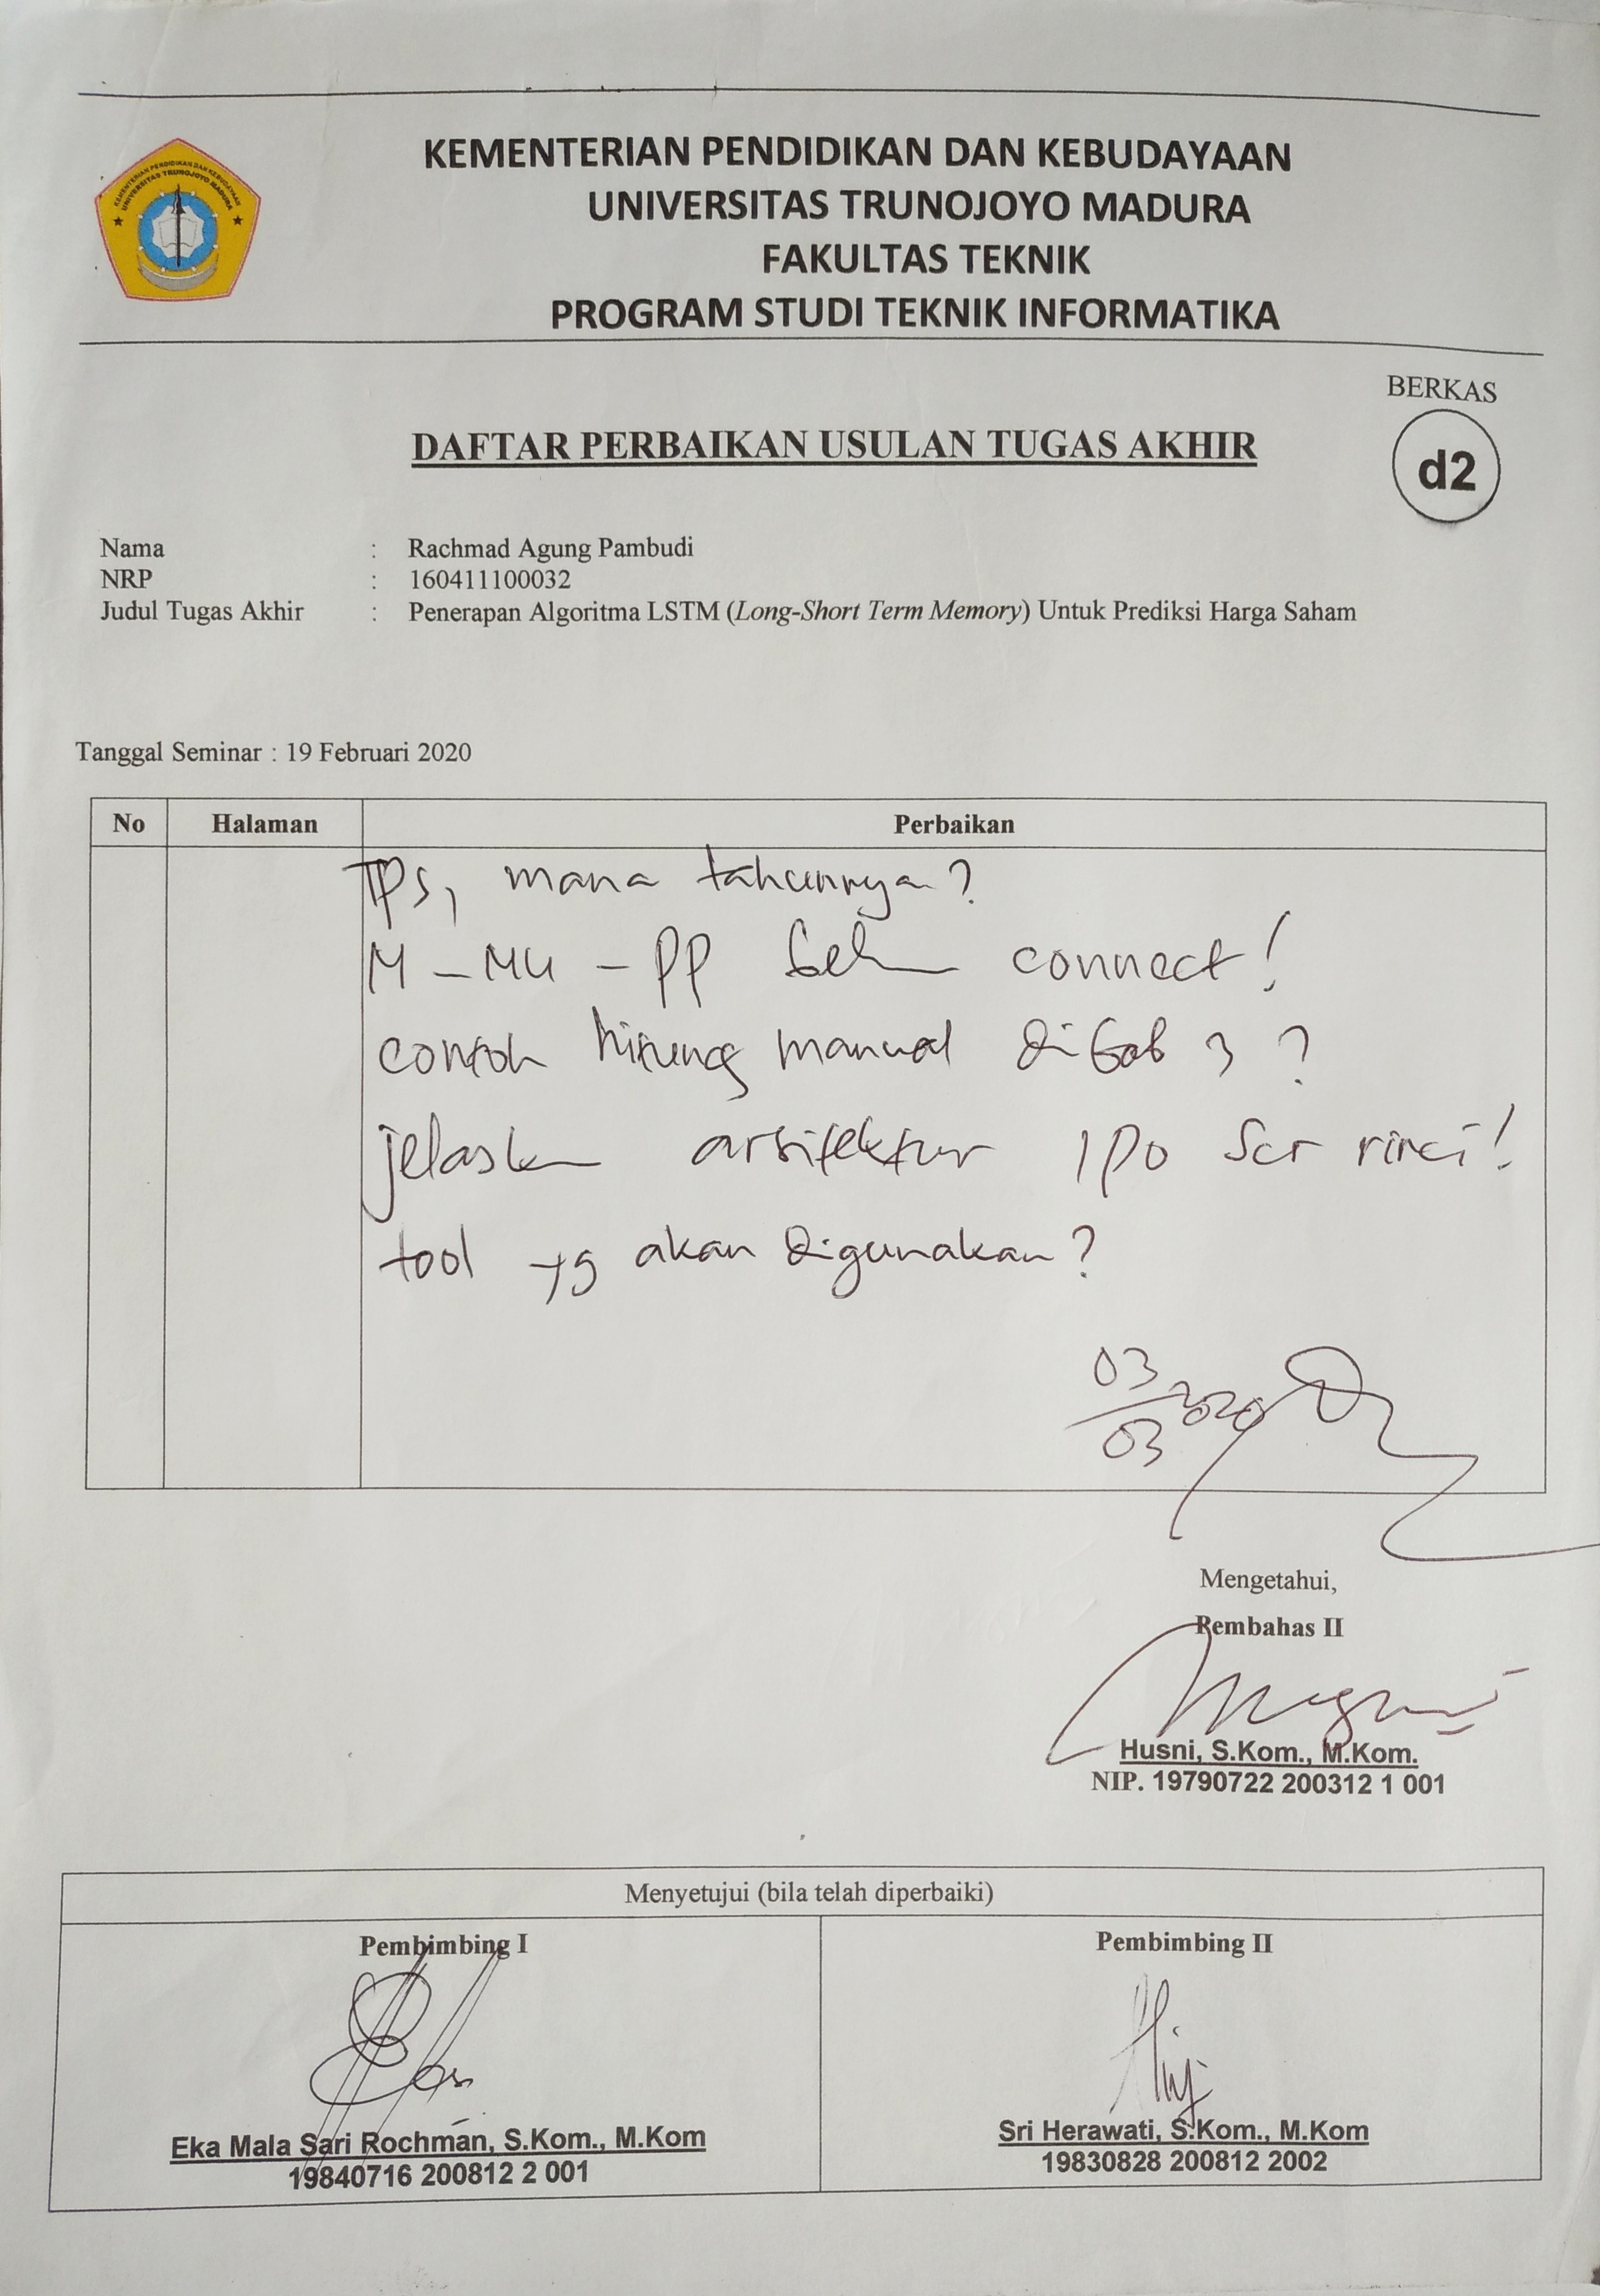 KEMENTERIAN PENDIDIKAN DAN KEBUDAYAAN
UNIVERSITAS TRUNOJOYO MADURA
FAKULTAS TEKNIK
PROGRAM STUDI TEKNIK INFORMATIKA
KEMENTERIAN PENDIDIKAN DAN KEBUDAYAAN
UNIVERSITAS TRUNOJOYO MADURA
BERKAS
DAFTAR PERBAIKAN USULAN TUGAS AKHIR
d2
Nama : Rachmad Agung Pambudi
NRP : 160411100032
Judul Tugas Akhir : Penerapan Algoritma LSTM (Long-Short Term Memory) Untuk Prediksi Harga Saham
Tanggal Seminar : 19 Februari 2020
No Halaman Perbaikan
mana tahunnya?
M - MU - PP connect!
contoh hitung manual di bab 3 ?
jelaskan arsitektur IPO scr rinci!
tool yg akan digunakan?
03/03 2020
Mengetahui,
Pembahas II
Husni, S.Kom., M.Kom.
NIP. 19790722 200312 1 001
Menyetujui (bila telah diperbaiki)
Pembimbing I
Pembimbing II
Eka Mala Sari Rochman, S.Kom., M.Kom
19840716 200812 2 001
Sri Herawati, S.Kom., M.Kom
19830828 200812 2002